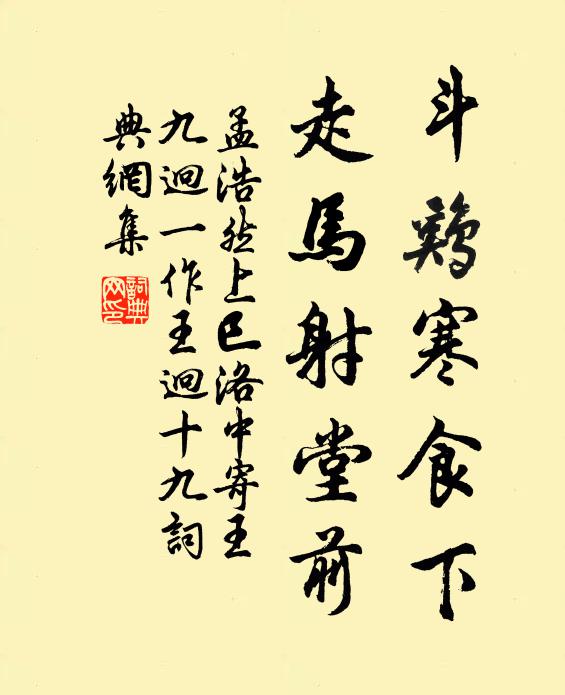 斗鷄寒食下
走馬射堂前
孟浩然上巳洛中寄王
九迥一作王迥十九詞
典網集
詞典
网印